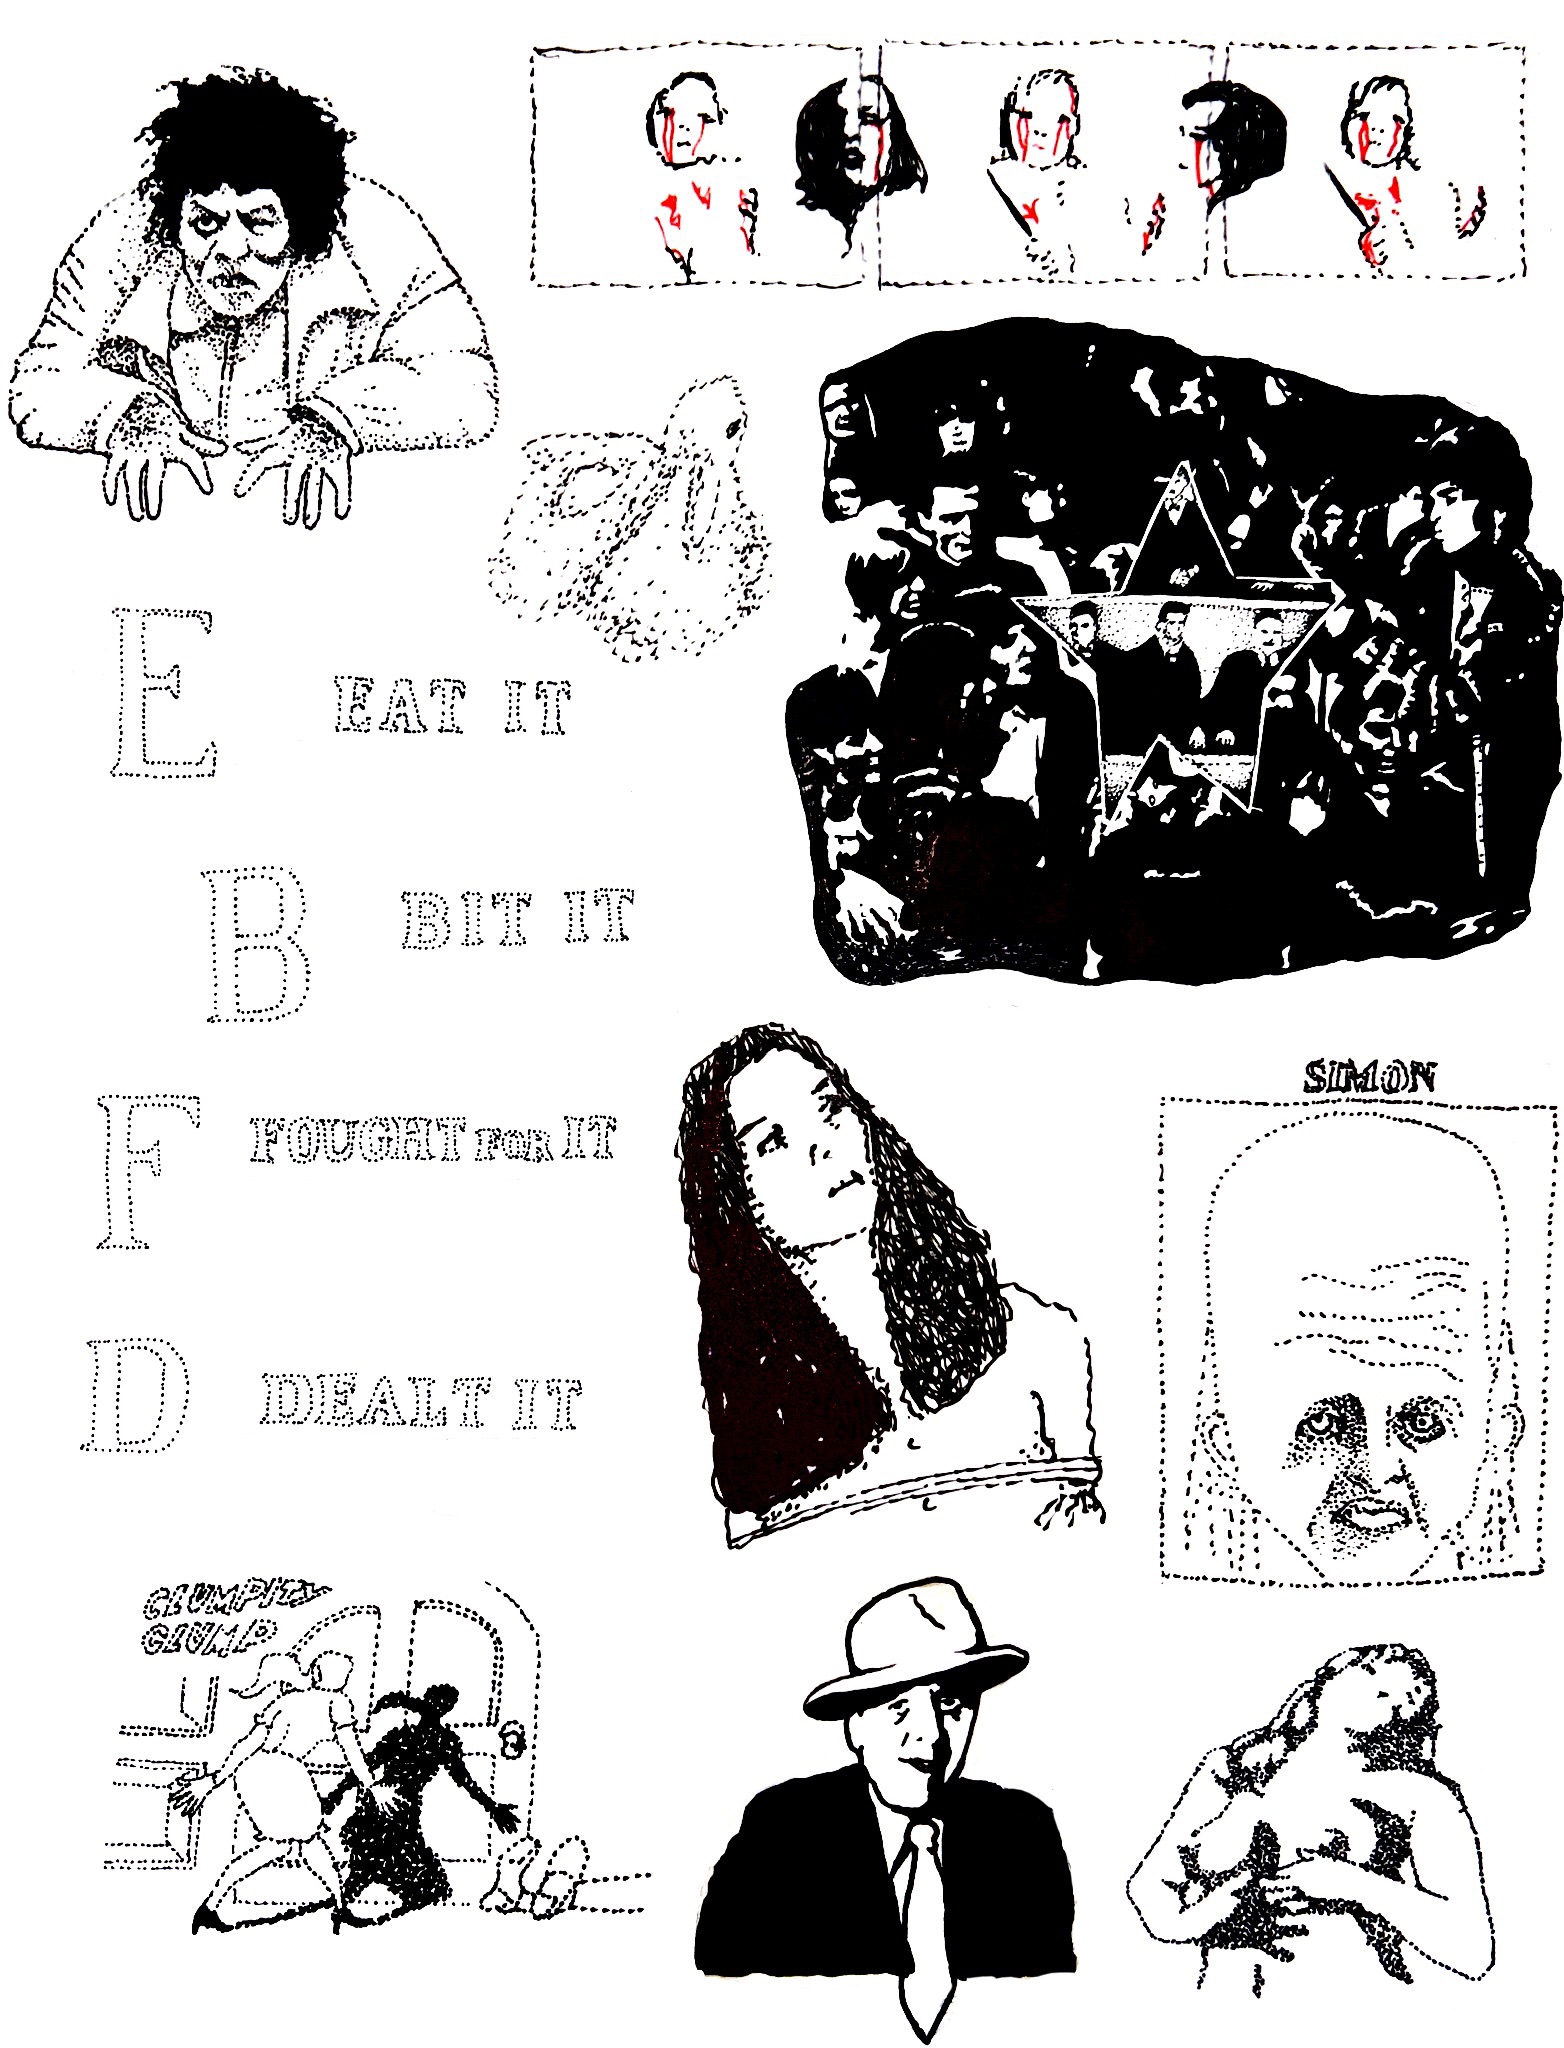 E EAT IT
B BIT IT
F FOUGHT FOR IT
D DEALT IT
SIMON
CLUMPITY
CLUMP